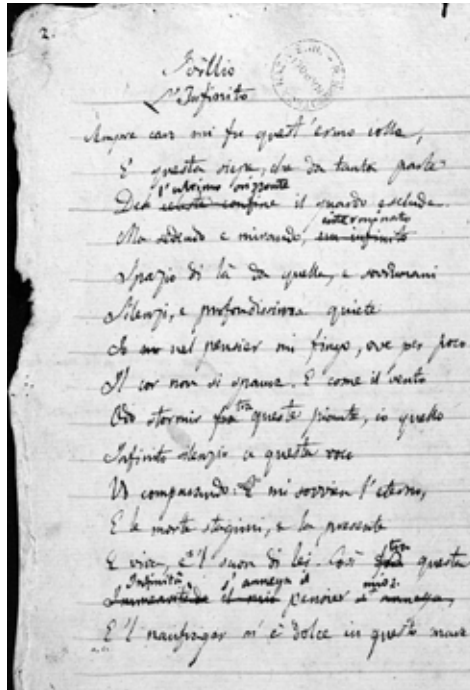 2.
Idillio
L'Infinito
Sempre caro mi fu quest'ermo colle,
E questa siepe, che da tanta parte
l'ultimo orizzonte
Del celeste confine il guardo esclude.
interminato
Ma sedendo e mirando, un infinito
Spazio di là da quella, e sovrumani
Silenzi, e profondissima quiete
Io nel pensier mi fingo, ove per poco
Il cor non si spaura. E come il vento
tra
Odo stormir fra queste piante, io quello
Infinito silenzio a questa voce
Vo comparando. E mi sovvien l'eterno,
E le morte stagioni, e la presente
tra
E viva, e 'l suon di lei. Così fra questa
Infinità s'annega il mio
Immensitade il mio pensier s'annega,
E 'l naufragar m'è dolce in questo mare